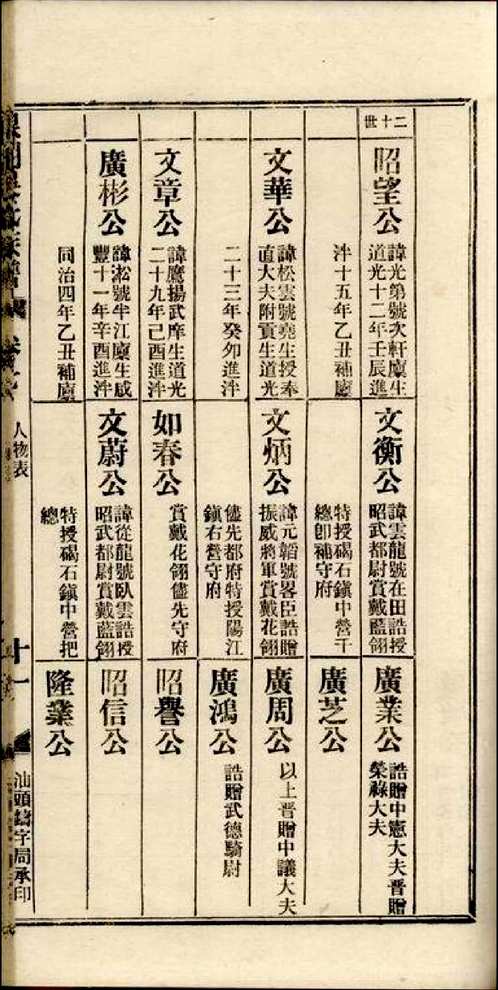 二十世
昭望公
諱光第號次軒廩生
道光十二年壬辰進
泮十五年乙亥補廩
文華公
諱松雲號堯生授奉
直大夫附貢生道光
二十三年癸卯進泮
文章公
諱鷹揚武庠生道光
二十九年己酉進泮
廣彬公
諱淞號半江廩生咸
豐十一年辛酉進泮
同治四年乙丑補廩
文衡公
諱雲龍號在田誥授
昭武都尉賞戴藍翎
特授碣石鎮中營千
總卽補守府
文炳公
諱元韜號畧臣誥贈
振威將軍賞戴花翎
儘先都府特授陽江
鎮右營守府
如春公
賞戴花翎儘先守府
文蔚公
諱從龍號臥雲誥授
昭武都尉賞戴藍翎
特授碣石鎮中營把
總
廣業公
誥贈中憲大夫晋贈
榮祿大夫
廣芝公
廣周公
以上晋贈中議大夫
廣鴻公
誥贈武德騎尉
昭譽公
昭信公
隆業公
人物表
十一
汕頭鑄字局承印